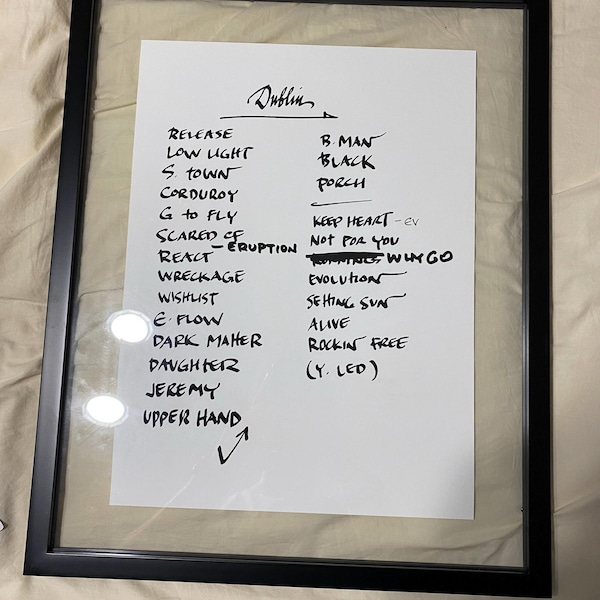 Dublin
RELEASE
LOW LIGHT
S. TOWN
CORDUROY
G to FLY
SCARED OF
REACT - ERUPTION
WRECKAGE
WISHLIST
E. FLOW
DARK MATTER
DAUGHTER
JEREMY
UPPER HAND
B. MAN
BLACK
PORCH
KEEP HEART - EV
NOT FOR YOU
WHY GO
EVOLUTION
SETTING SUN
ALIVE
ROCKIN FREE
(Y. LED)